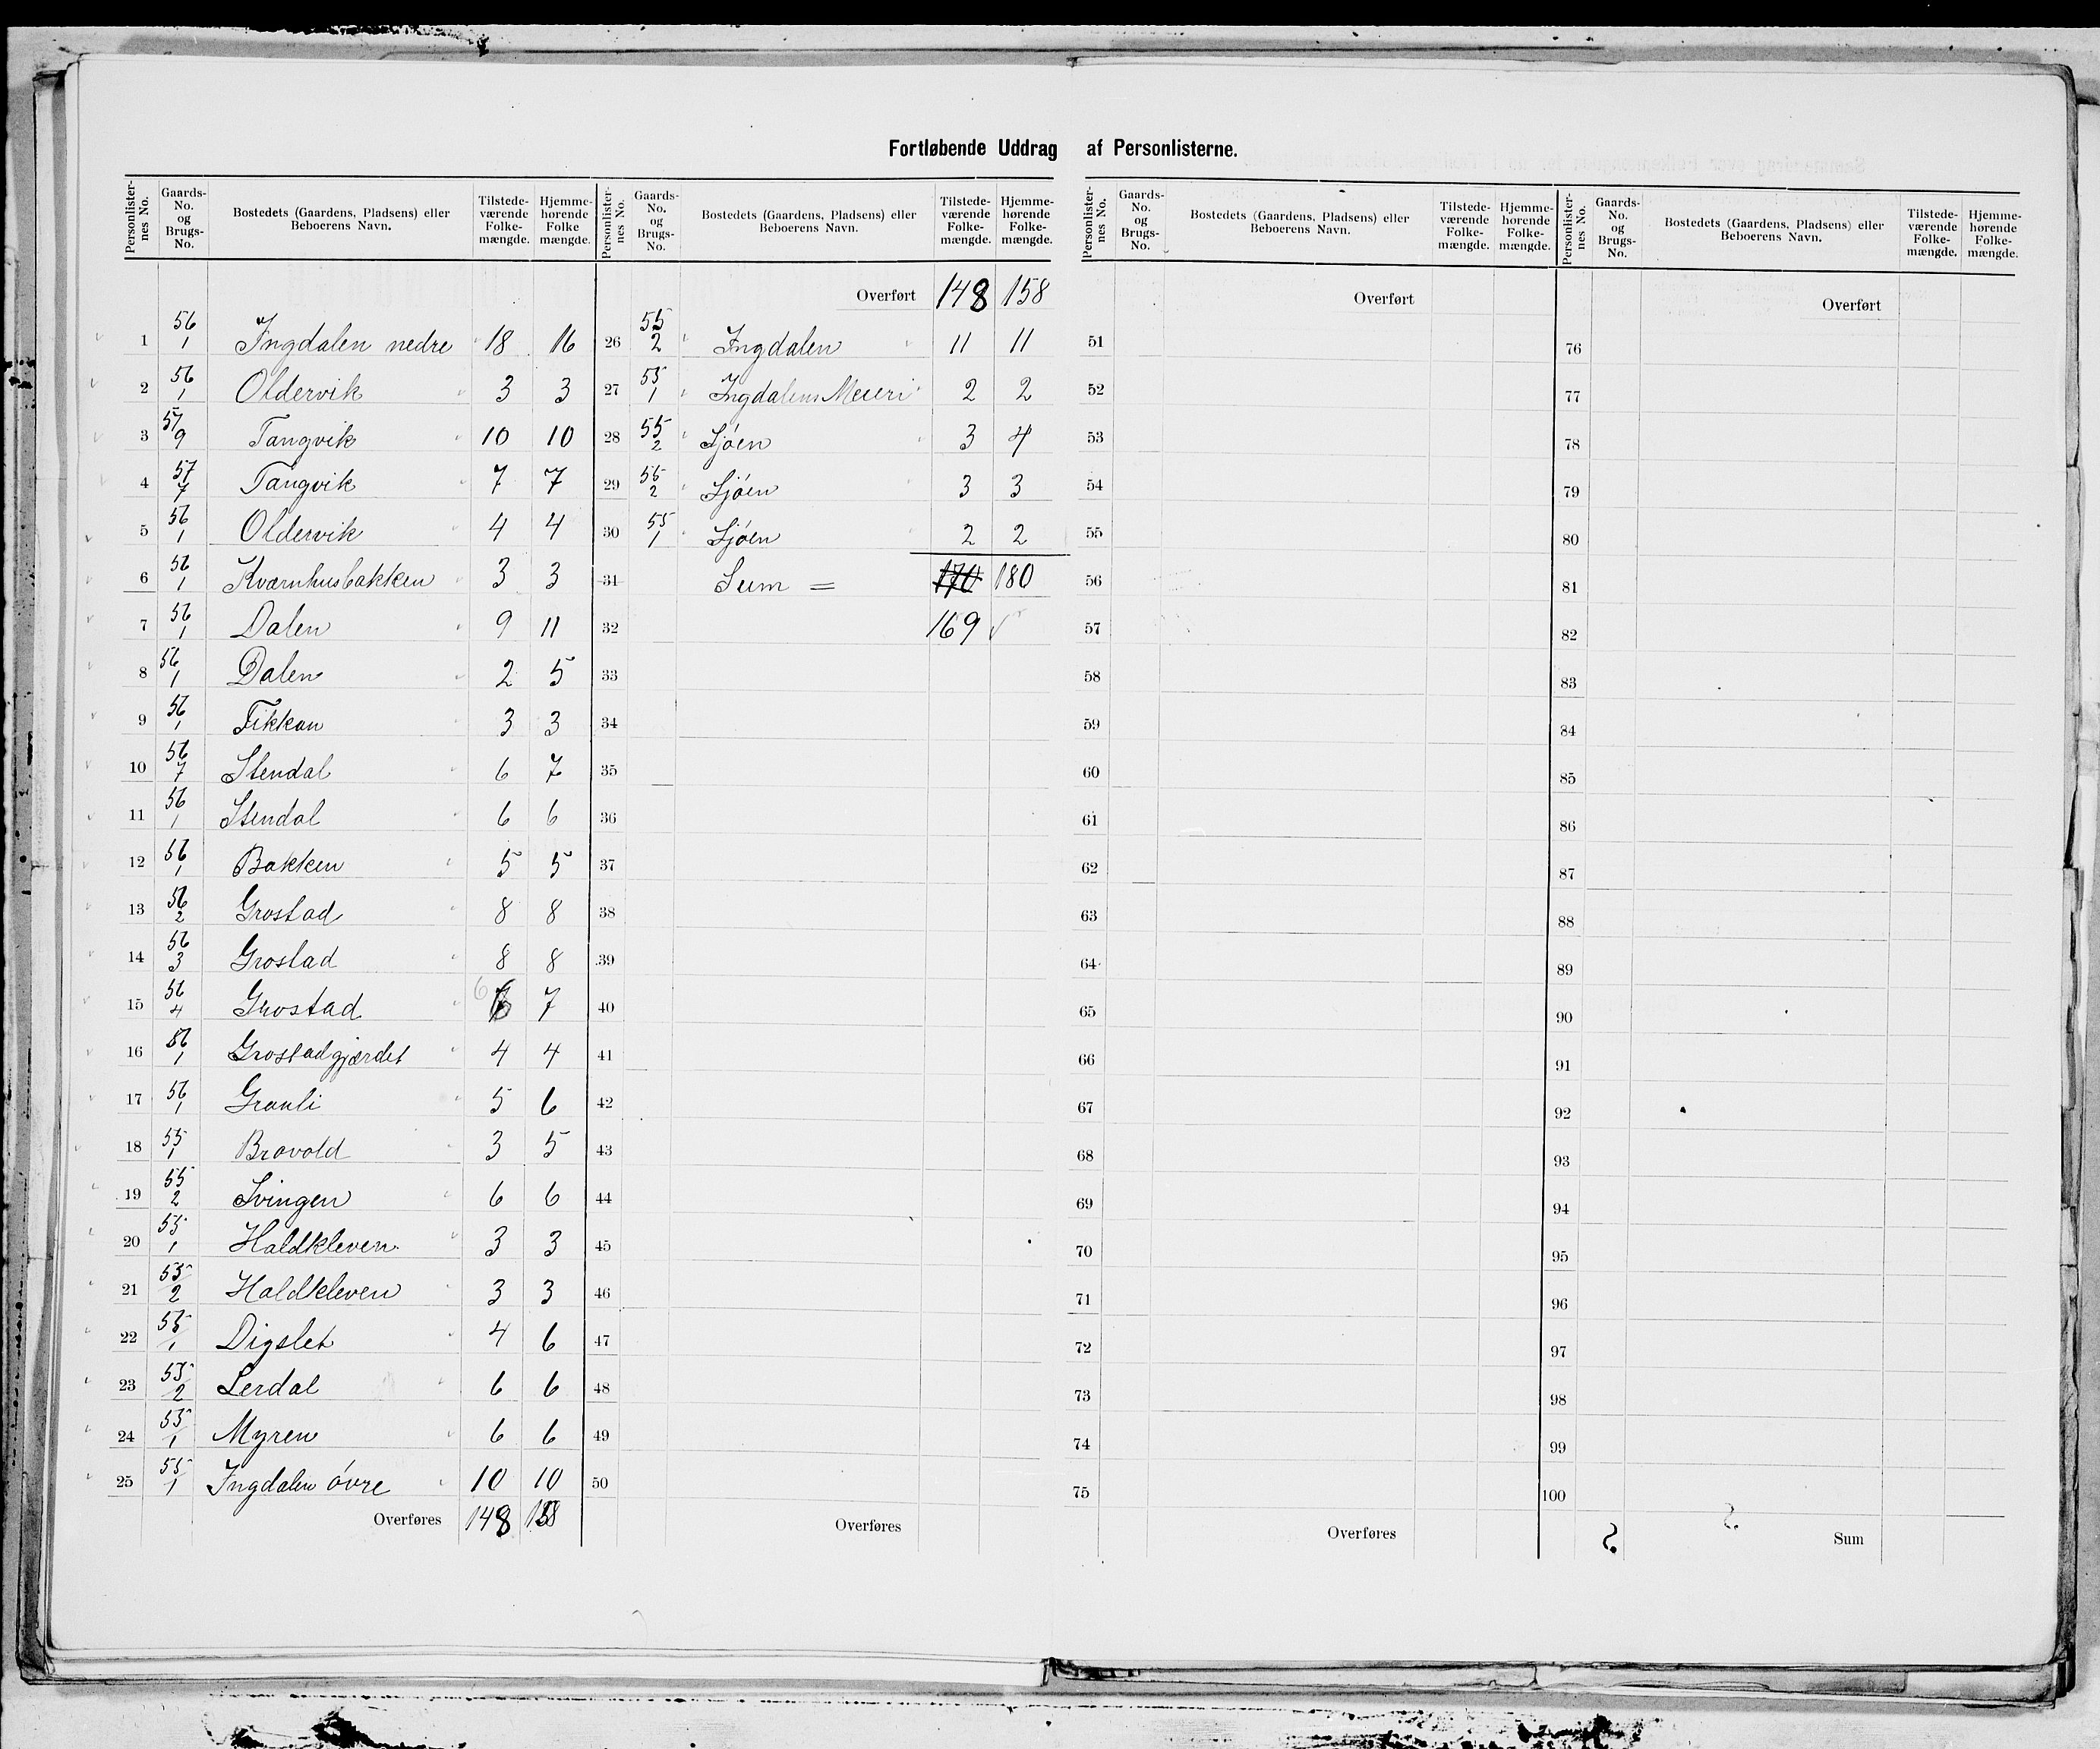 Fortløbende Uddrag af Personlisterne.
Personlisternes No. | Gaards-No. og Brugs-No. | Bostedets (Gaardens, Pladsens) eller Beboerens Navn. | Tilstedeværende Folkemængde. | Hjemmehørende Folke mængde.
1 | 56/1 | Ingdalen nedre | 18 | 16
2 | 56/1 | Oldervik | 3 | 3
3 | 57/9 | Tangvik | 10 | 10
4 | 57/7 | Tangvik | 7 | 7
5 | 56/1 | Oldervik | 4 | 4
6 | 56/1 | Kvarnhusbakken | 3 | 3
7 | 56/1 | Dalen | 9 | 11
8 | 56/1 | Dalen | 2 | 5
9 | 56/1 | Fikkan | 3 | 3
10 | 56/7 | Stendal | 6 | 7
11 | 56/1 | Stendal | 6 | 6
12 | 56/1 | Bakken | 5 | 5
13 | 56/2 | Grostad | 8 | 8
14 | 56/3 | Grostad | 8 | 8
15 | 56/4 | Grostad | 6 | 7
16 | 56/1 | Grostadgjærdet | 4 | 4
17 | 56/1 | Granli | 5 | 6
18 | 55/1 | Bravold | 3 | 5
19 | 55/2 | Svingen | 6 | 6
20 | 55/1 | Haldkleven | 3 | 3
21 | 55/2 | Haldkleven | 3 | 3
22 | 55/1 | Digslet | 4 | 6
23 | 55/2 | Lerdal | 6 | 6
24 | 55/1 | Myren | 6 | 6
25 | 55/1 | Ingdalen óvre | 10 | 10
Overføres | 148 | 158
Personlisternes No. | Gaards-No. og Brugs-No. | Bostedets (Gaardens, Pladsens) eller Beboerens Navn. | Tilstedeværende Folkemængde. | Hjemmehørende Folkemængde.
Overført | 148 | 158
26 | 55/2 | Ingdalen | 11 | 11
27 | 55/1 | Ingdalens Meieri | 2 | 2
28 | 55/2 | Sjóen | 3 | 4
29 | 55/2 | Sjóen | 3 | 3
30 | 55/1 | Sjóen | 2 | 2
31 | Sum = | 170 | 180
32 | 169
33
34
35
36
37
38
39
40
41
42
43
44
45
46
47
48
49
50
Overføres
Personlisternes No. | Gaards-No. og Brugs-No. | Bostedets (Gaardens, Pladsens) eller Beboerens Navn. | Tilstedeværende Folkemængde. | Hjemmehørende Folkemængde.
Overført
51
52
53
54
55
56
57
58
59
60
61
62
63
64
65
66
67
68
69
70
71
72
73
74
75
Overføres
Personlisternes No. | Gaards-No. og Brugs-No. | Bostedets (Gaardens, Pladsens) eller Beboerens Navn. | Tilstedeværende Folkemængde. | Hjemmehørende Folkemængde.
Overført
76
77
78
79
80
81
82
83
84
85
86
87
88
89
90
91
92
93
94
95
96
97
98
99
100
Sum